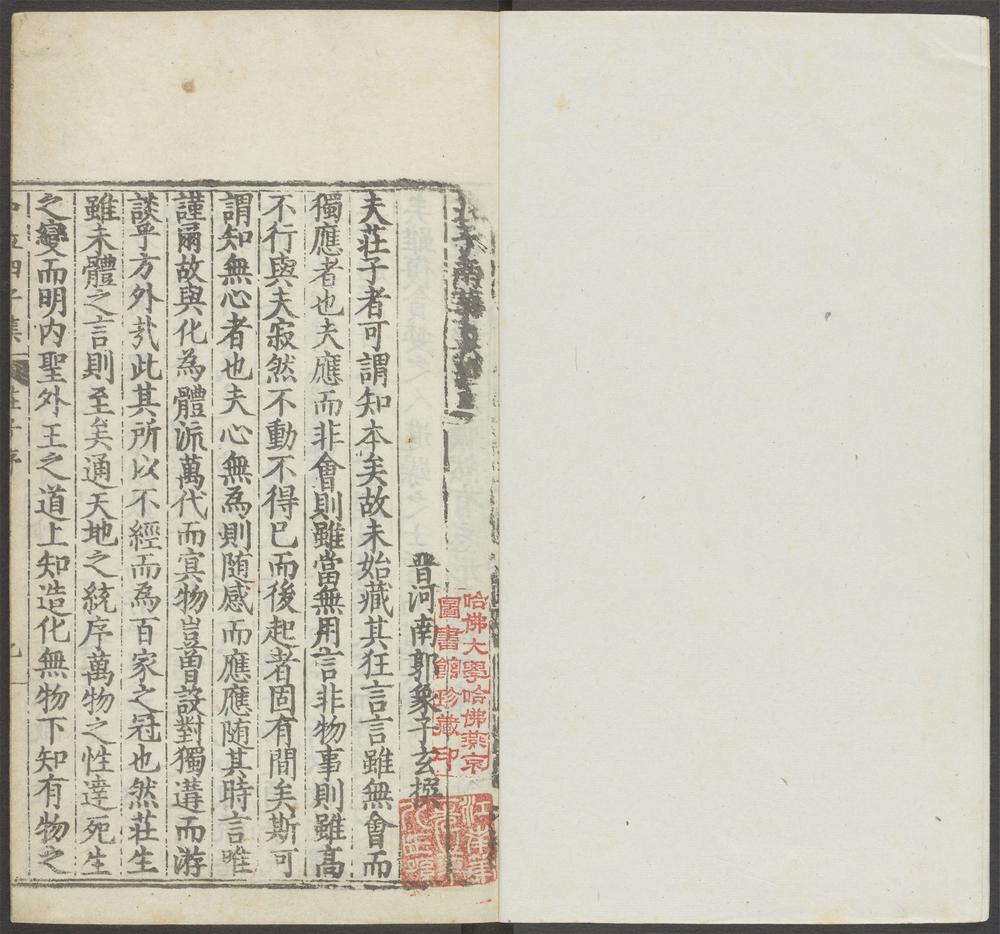 子南華真
晉河南郭象子玄撰
夫莊子者可謂知本矣故未始藏其狂言言雖無會而
獨應者也夫應而非會則雖當無用言非物事則雖高
不行與夫寂然不動不得已而後起者固有間矣斯可
謂知無心者也夫心無為則随感而應應随其時言唯
謹爾故與化為體流萬代而㝠物豈曾設對獨遘而游
談乎方外㢤此其所以不經而為百家之冠也然莊生
雖未體之言則至矣通天地之統序萬物之性達死生
之變而明内聖外王之道上知造化無物下知有物之
四子集
莊子序
哈佛大學哈佛燕京
圖書館珍藏印